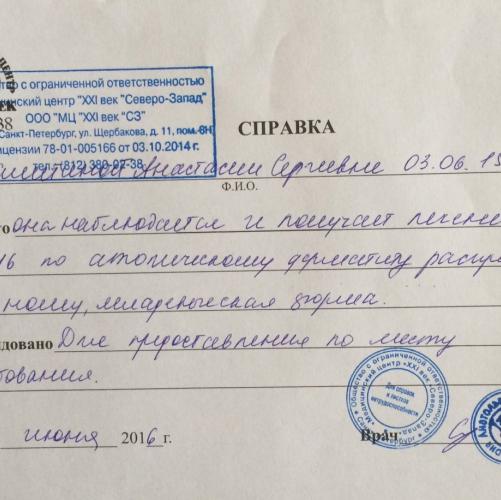 ЦЕНТР
тво с ограниченной ответственностью
цинский центр "XXI век "Северо-Запад"
ООО "МЦ "XXI век "СЗ"
Санкт-Петербург, ул. Щербакова, д. 11, пом. 8Н
ицензии 78-01-005166 от 03.10.2014 г.
тел.: (812) 380-02-38
38
СПРАВКА
Анастасии Сергеевне 03.06.19
Ф.И.О.
то она наблюдается и получает лечение
16 по атопическому дерматиту распро
ному, младенческая форма.
довано Для предоставления по месту
бования.
июня 2016 г.
Врач
Общество с ограниченной ответственностью
Медицинский центр «XXI век «Северо-Запад»
Для справок
и листков
нетрудоспособности